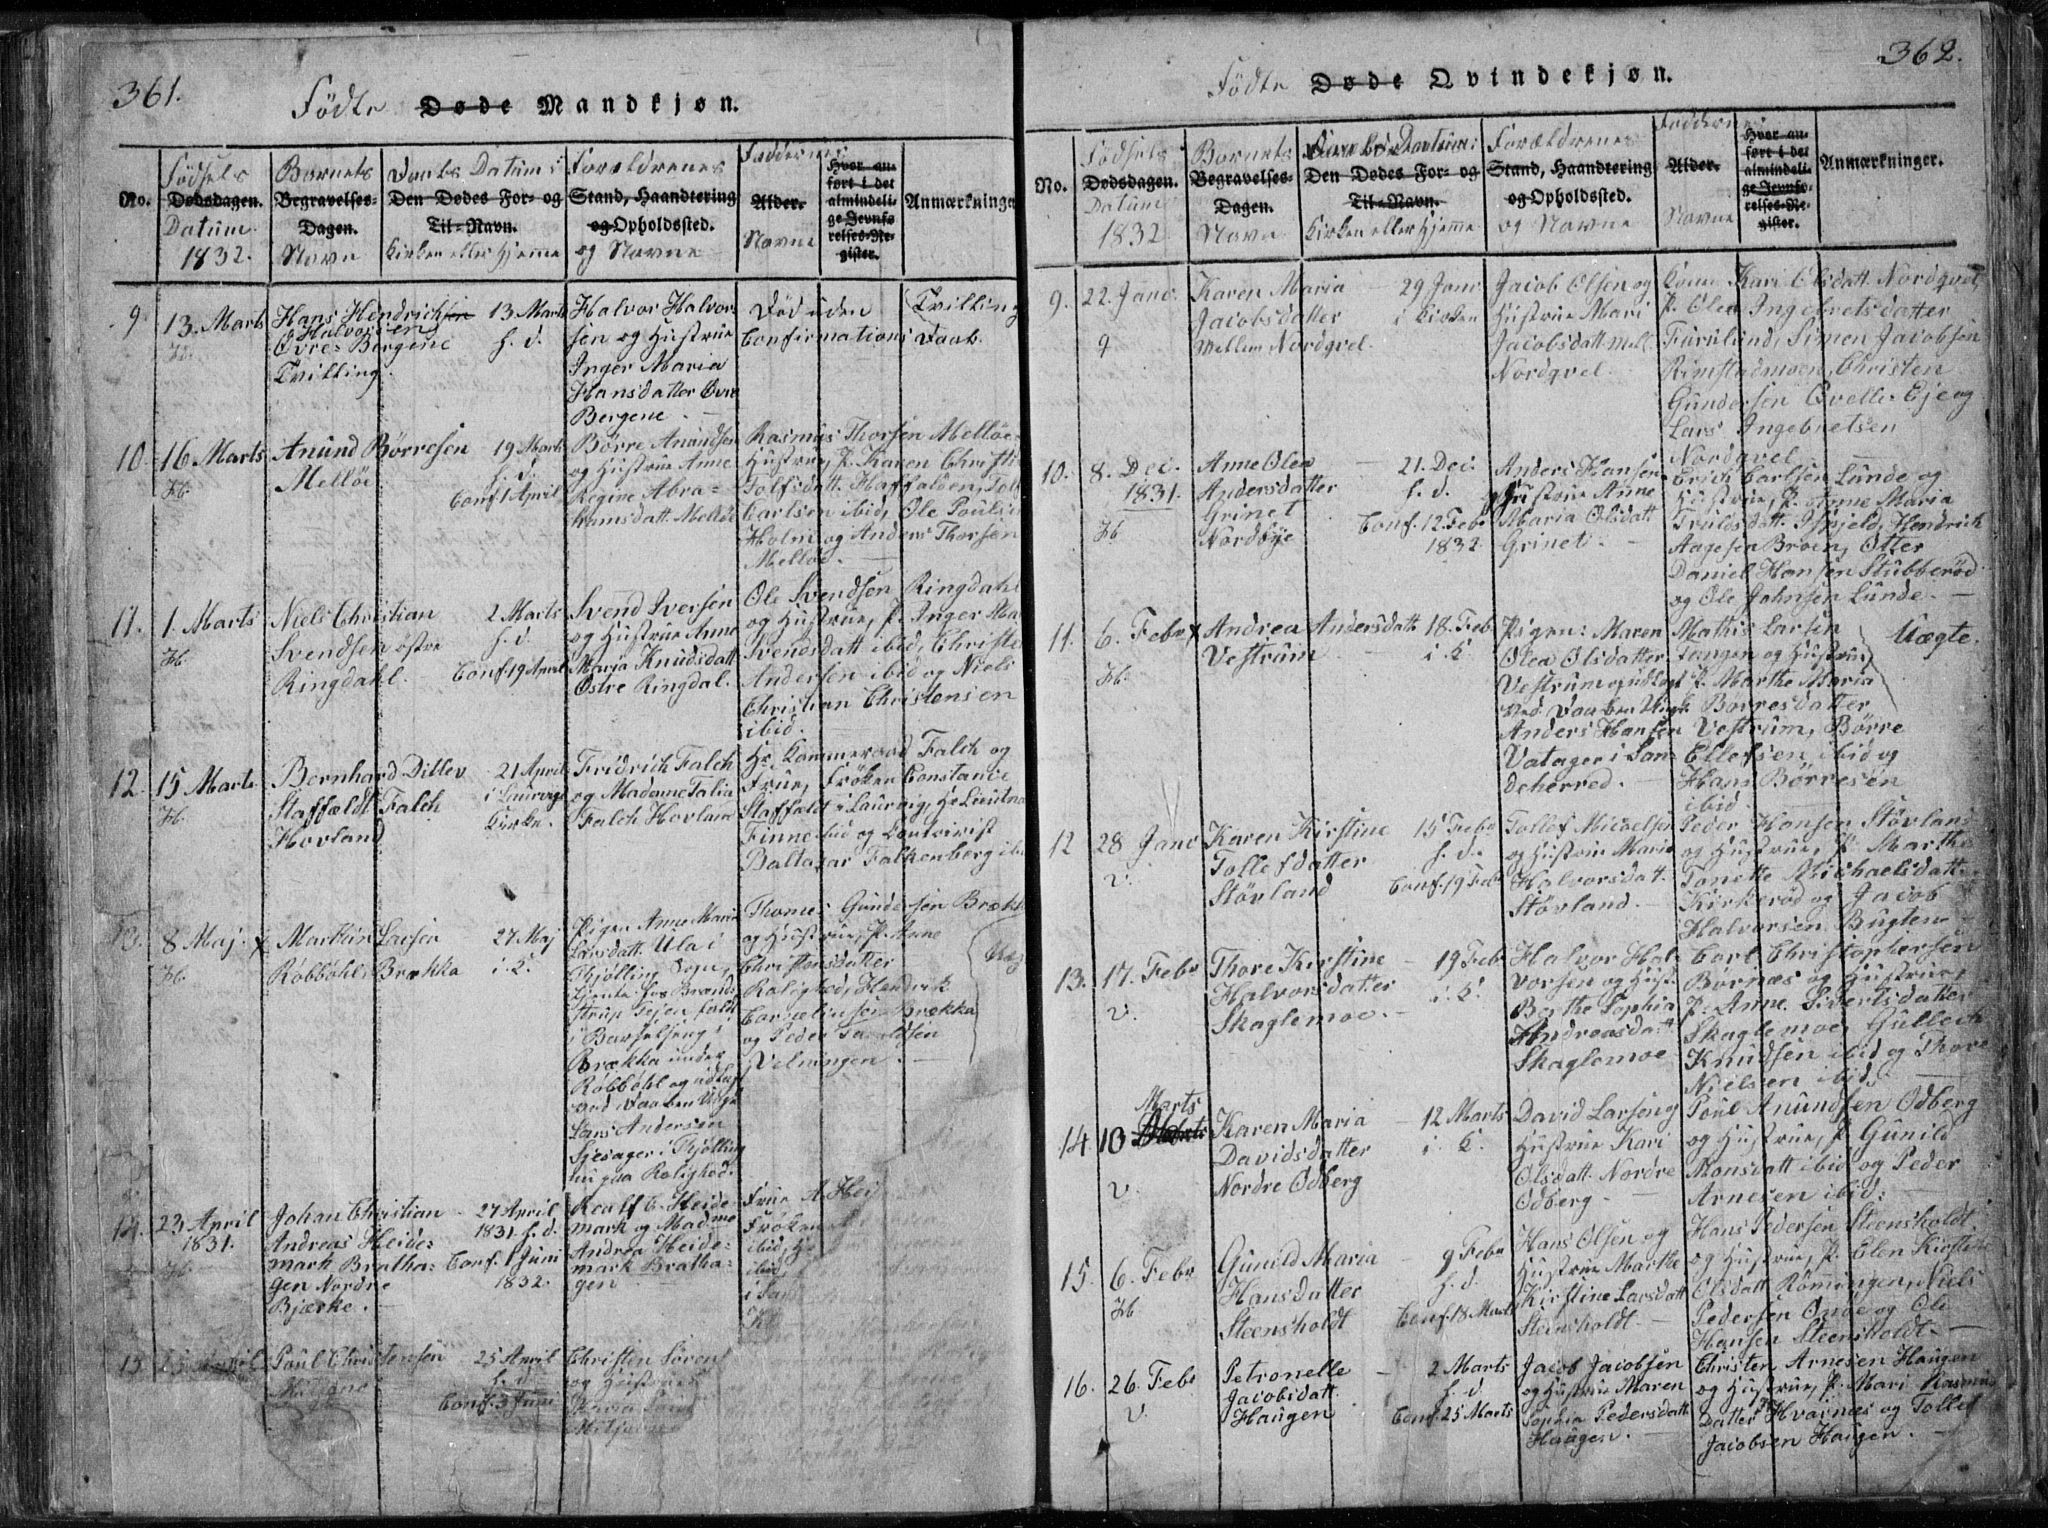 361.
Födte Døde Mandkjøn.
No.
Födsels
Dødsdagen.
Datum
1832.
Barnets
Begravelses-
Dagen.
Navn
Daabs Datum i
Den Dødes For- og
Til-Navn.
Kirken eller Hjemme
Forældrenes
Stand, Haandtering
og Opholdssted.
og Navne
Faddernes
Alder.
Navne
Hvor an-
ført i det
almindeli-
ge Jevnfø-
relses-Re-
gister.
Anmærkninge
9.
13. Marts
H.
Hans Hendrichsen
Halvorsen
Övre-Bergene
Tvilling.
13 Marts
h. d.
Halvor Halvor
sen og Hustrue
Inger Maria
Hansdatter Øvre
Bergene. —
Död uden
Confirmations Daab.
Tvilling
10.
16 Marts
H.
Anund Börresen
Mellöe
19 Marts
h. d.
Conf. 1 April
Börre Anundsen
og Hustrue Anne
Regine Abra-
hamsdatt. Mellöe
Rasmus Thorsen Mellöe
Hustrue, P. Karen Christi
Tolfsdatt. Haffalden, Tol
Carlsen ibid, Ole Poulse
Holm og Anders Thorsen
Mellöe. —
11.
1. Marts
H.
Niels Christian
Svendsen östre
Ringdahl.
2 Marts
h. d.
Conf. 19 April
Svend Iversen
og Hustrue Anne
Maria Knudsdatt
Østre Ringdal.
Ole Svendsen Ringdahl
og Hustrue, P. Inger Ma
Svendsdatt ibid, Christe
Andersen ibid og Niels
Christian Christensen
ibid. —
12.
15 Marts
H.
Bernhard Ditlev
Staffeldt Falch
Hovland
21 April
i Laurvigs
Kirke.
Fridrich Falch
og Madame Talia
Falch Hovland
Hr. Kammerraad Falch og
Frue, Fröken Constance
Staffeldt i Laurvig, Hr Lieutna
Finne ibid og
Baltazar Falkenberg ib
13.
8 Maj.
H.
x Marthin Larsen
Röbböhl Brækka
27 Maj
i K.
Pigen Anne Maria
Larsdatt. Ula i
Thjølling Sogn,
tjente hos Brænd-
strup Tejen faldt
i Barselseng i
Brækka under
Röbböhl og udlagt
ved Daaben Ungk.
Lars Andersen
i Thjølling
nu paa Rolighed.
Thomes Gundersen Bræk
og Hustrue, P. Anne
Christensdatter
Rolighed, Hendrik
Cornelinsen Brækka
og Peder
Velmingen. —
Uæg
14.
23 April
1831.
H.
Johan Christian
Andreas Heide-
mark Bratha-
gen Nordre
Bjerke. —
27 April
1831. h. d.
Conf. 1 Juni
1832.
C. Heide-
mark og Madme
Andrea Heide-
mark Bratha-
gen —
Frue A Hei
Fröken
ibid, H
ibid,
i San
15
Poul Christensen
25 April
h. d.
Conf. 3 Juni
Christen Sören
og Hustrue
362.
Födte Døde Qvindekjøn.
No.
Födsels
Dødsdagen.
Datum
1832
Barnets
Begravelses-
Dagen.
Navn
Daabs Datum i
Den Dødes For- og
Til-Navn.
Kirken eller Hjemme
Forældrenes
Stand, Haandtering
og Opholdssted.
og Navne
Faddernes
Alder.
Navne
Hvor an-
ført i det
almindeli-
ge Jevnfø-
relses-Re-
gister.
Anmærkninger.
9.
22. Janv.
9
Karen Maria
Jacobsdatter
Mellem Nordqvel.
29 Janv.
i Kirken
Jacob Olsen og
Hustrue Mari
Jacobsdatt mell.
Nordqvel. —
Kone Kari Olsdatt Nordqvel,
P. Olea Ingebretsdatter
Furulund, Simen Jacobsen
Rimstadmoen, Christen
Gundersen Qvelle Eje og
Lars Ingebretsen
Nordqvel. —
10.
8. Dec.
1831.
H.
Anne Olea
Andersdatter
Grinet
Nordbÿe
21. Dec.
h. d.
Conf. 12 Feb
1832.
Anders Hansen
Hustrue Anne
Maria Olsdatt
Grinet. —
Erich Carlsen Lunde og
Hustrue, P. Anne Maria
Truldsdatt. Isfjeld, Hendrich
Aagesen Broen, Otter
Daniel Hansen Stubberöd
og Ole Johnsen Lunde. —
11.
6. Febr
H.
x Andrea Andersdatt
Vestrum. —
18. Feb
i K.
Pigen: Maren
Olea Olsdatter
Vestrum og udlagt
ved Daaben Ungk
Anders Hansen
Vatager i San-
deherred. —
Mathis Larsen
Tangen og Hustrue,
P. Marthe Maria
Borresdatter
Vestrum, Börre
Ellefsen ibid og
Hans Börresen
ibid
Uægte.
12
28 Janv
V.
Karen Kirstine
Tollefsdatter
Stövland
15 Febr
h. d.
Conf. 19 Feb
Tollef Micaelsen
og Hustrue Maria
Halvorsdatt.
Stövland. —
Peder Hansen Stövland
og Hustrue, P. Marthe
Tonette Michaelsdatt.
Kirkeröd og Jacob
Halvorsen Bugten —
13.
17. Febr
V.
Thore Kirstine
Halvorsdatter
Skaglemoe. —
19 Febr
i K.
Halvor Hal-
vorsen og Hust
Berthe Sophia
Andreasdatt
Skaglemoe
Carl Christophersen
Börnæs og Hustrue,
P. Anne Sivertsdatter
Skaglemoe, Gullech
Knudsen ibid og Thore
Nielsen ibid. —
14.
10
Marts
V.
Karen Maria
Davidsdatter
Nordre Odberg
12 Marts
i. K.
David Larsen og
Hustrue Kari
Olsdatt. Nordre
Odberg —
Poul Anundsen Odberg
og Hustrue, P. Gunild
Monsdatt ibid og Peder
Arnesen ibid. —
15.
6. Febr
H.
Gunild Maria
Hansdatter
Steensholdt
9 Febr
h. d.
Conf. 18 Marts
Hans Olsen og
Hustrue Marthe
Kirstine Larsdatt
Steensholdt. —
Hans Pedersen Steensholdt
og Hustrue, P. Elen Kirstine
Olsdatt Römmingen, Niels
Pedersen Onde og Ole
Hansen Steensholdt. —
16.
26. Febr
V.
Petronelle
Jacobsdatt.
Haugen
2 Marts
h. d.
Conf. 25 Marts
Jacob Jacobsen
og Hustrue Maren
Sophia Pedersdatt
Haugen. —
Christen Arnesen Haugen
og Hustrue, P. Mari Rasmus
Datter Hvarnes og Tollef
Jacobsen Haugen. —